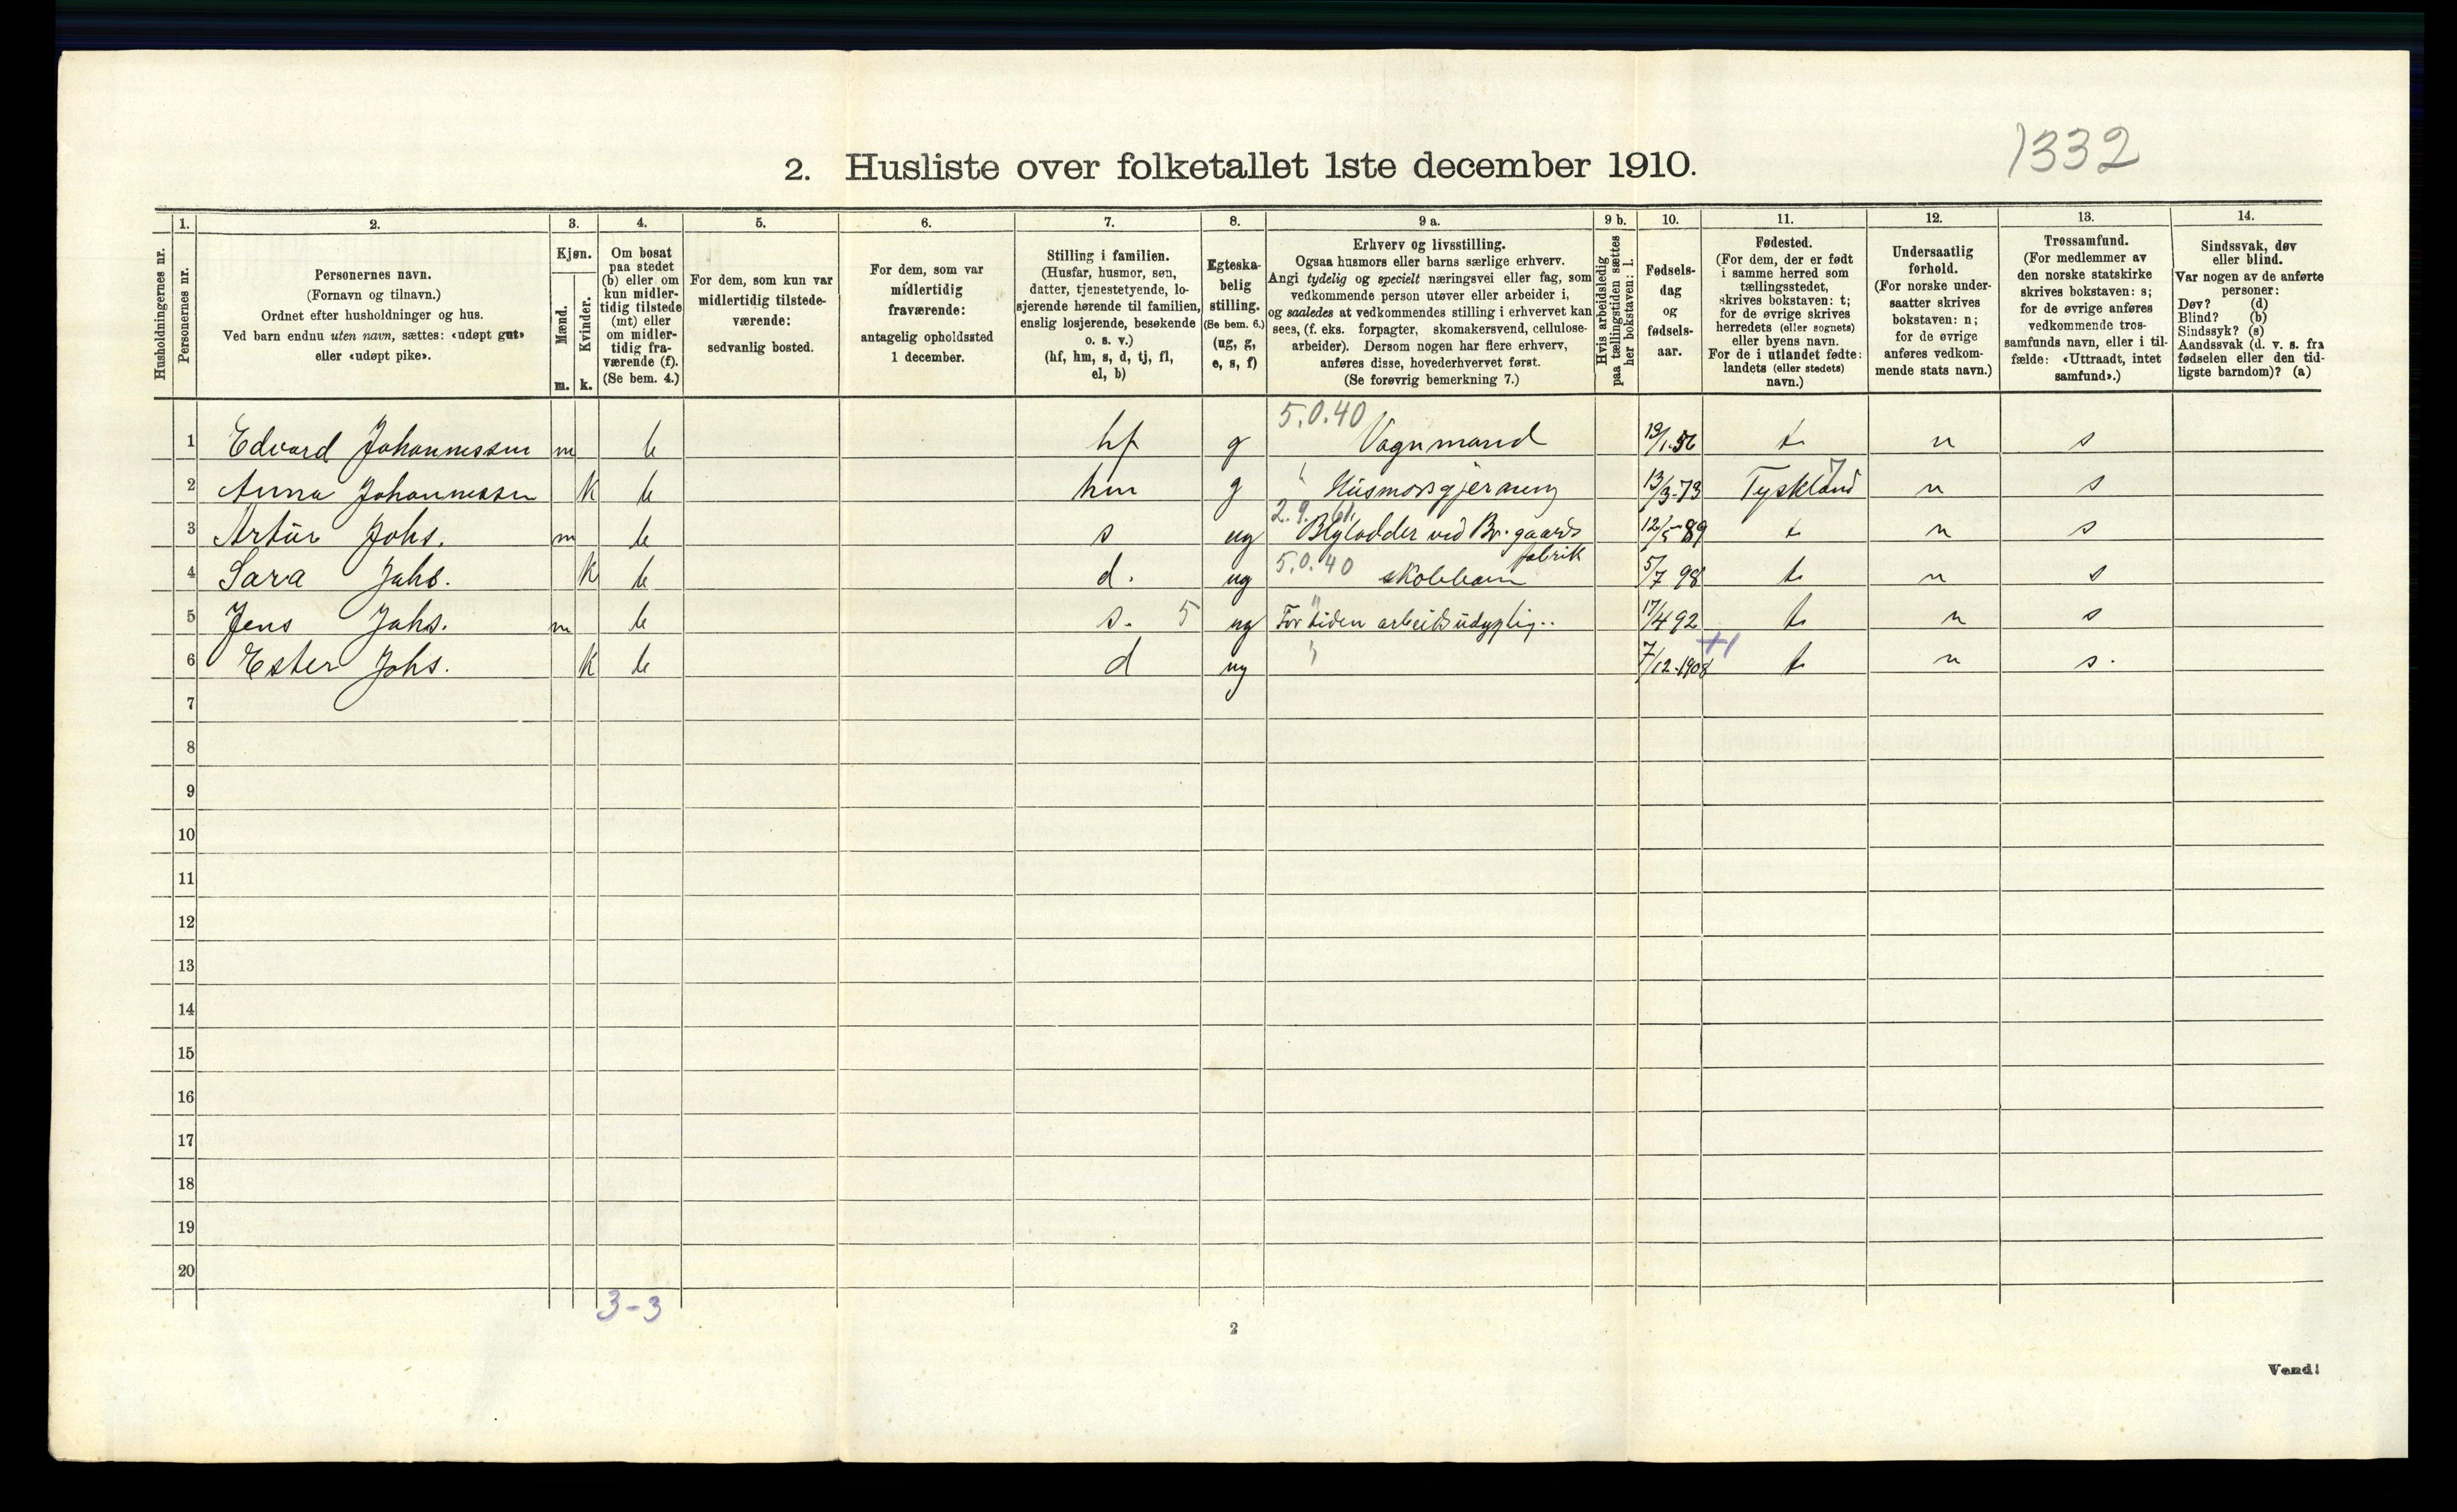 1332
2. Husliste over folketallet 1ste december 1910.
1. 2. 3. 4. 5. 6. 7. 8. 9 a. 9 b. 10. 11. 12. 13. 14.
Husholdningernes nr.
Personernes nr.
Personernes navn.
(Fornavn og tilnavn.)
Ordnet efter husholdninger og hus.
Ved barn endnu uten navn, sættes: «udøpt gut»
eller «udøpt pike».
Kjøn.
Mænd.
Kvinder.
m. k.
Om bosat
paa stedet
(b) eller om
kun midler-
tidig tilstede
(mt) eller
om midler-
tidig fra-
værende (f).
(Se bem. 4.)
For dem, som kun var
midlertidig tilstede-
værende:
sedvanlig bosted.
For dem, som var
midlertidig
fraværende:
antagelig opholdssted
1 december.
Stilling i familien.
(Husfar, husmor, søn,
datter, tjenestetyende, lo-
sjerende hørende til familien,
enslig losjerende, besøkende
o. s. v.)
(hf, hm, s, d, tj, fl,
el, b)
Egteska-
belig
stilling.
(Se bem. 6.)
(ug, g,
e, s, f)
Erhverv og livsstilling.
Ogsaa husmors eller barns særlige erhverv.
Angi tydelig og specielt næringsvei eller fag, som
vedkommende person utøver eller arbeider i,
og saaledes at vedkommendes stilling i erhvervet kan
sees, (f. eks. forpagter, skomakersvend, cellulose-
arbeider). Dersom nogen har flere erhverv,
anføres disse, hovederhvervet først.
(Se forøvrig bemerkning 7.)
Hvis arbeidsledig
paa tællingstiden sættes
her bokstaven: l.
Fødsels-
dag
og
fødsels-
aar.
Fødested.
(For dem, der er født
i samme herred som
tællingsstedet,
skrives bokstaven: t;
for de øvrige skrives
herredets (eller sognets)
eller byens navn.
For de i utlandet fødte:
landets (eller stedets)
navn.)
Undersaatlig
forhold.
(For norske under-
saatter skrives
bokstaven: n;
for de øvrige
anføres vedkom-
mende stats navn.)
Trossamfund.
(For medlemmer av
den norske statskirke
skrives bokstaven: s;
for de øvrige anføres
vedkommende tros-
samfunds navn, eller i til-
fælde: «Uttraadt, intet
samfund».)
Sindssvak, døv
eller blind.
Var nogen av de anførte
personer:
Døv? (d)
Blind? (b)
Sindssyk? (s)
Aandssvak (d. v. s. fra
fødselen eller den tid-
ligste barndom)? (a)
5.0.40
1 Edvard Johannessen m b hf g Vognmand 19/1.56 t n s
7
2 Anna Johannessen k b hm g Husmorsgjerning 13/3-73 Tyskland n s
2.9.
3 Artur Johs. m b s ug Blylodder ved Br.gaards 12/5-89 t n s
fabrik
5.0.40
4 Sara Johs. k b d. ug skolebarn 5/7 98 t n s
5 Jens Johs. m b s. 5 ug For tiden arbeidsudygtig.. 17/4 92 t n s
6 Ester Johs. k b d ug 7/12-1908 t n s.
7
8
9
10
11
12
13
14
15
16
17
18
19
20
3-3
2
Vend!